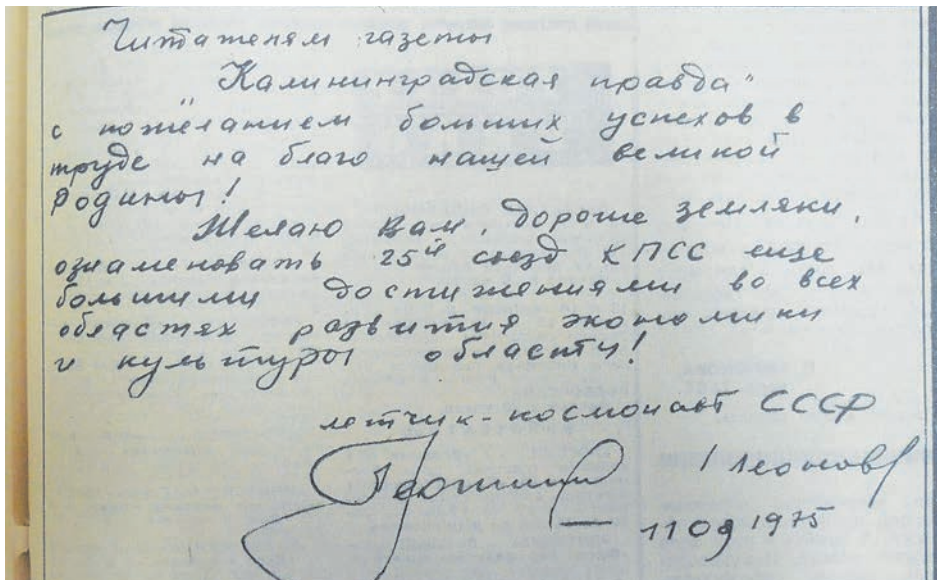 Читателям газеты
"Калининградская правда"
с пожеланием больших успехов в
труде на благо нашей великой
Родины!
Желаю Вам, дорогие земляки,
ознаменовать 25й съезд КПСС еще
большими достижениями во всех
областях развития экономики
и культуры области!
летчик-космонавт СССР
/Леонов/
— 11 09 1975